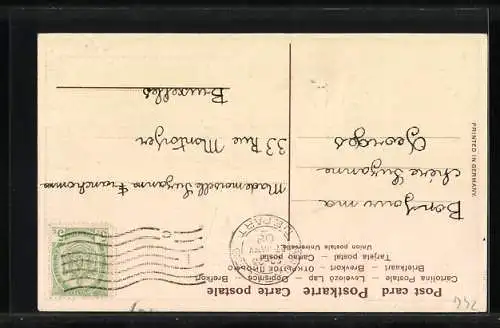 Post card Postkarte Carte postale
Cartolina Postale – Levelező Lap – Dopisnice – Brefkort
Briefkaart – Brevkort – Открытое письмо
Tarjeta postal – Cartão postal
Union postale Universelle
DEPART
5
Bonjour ma
chère Suzanne
Georges
Mademoiselle Suzanne Franchomme
33 Rue Montoyer
Bruxelles
PRINTED IN GERMANY.